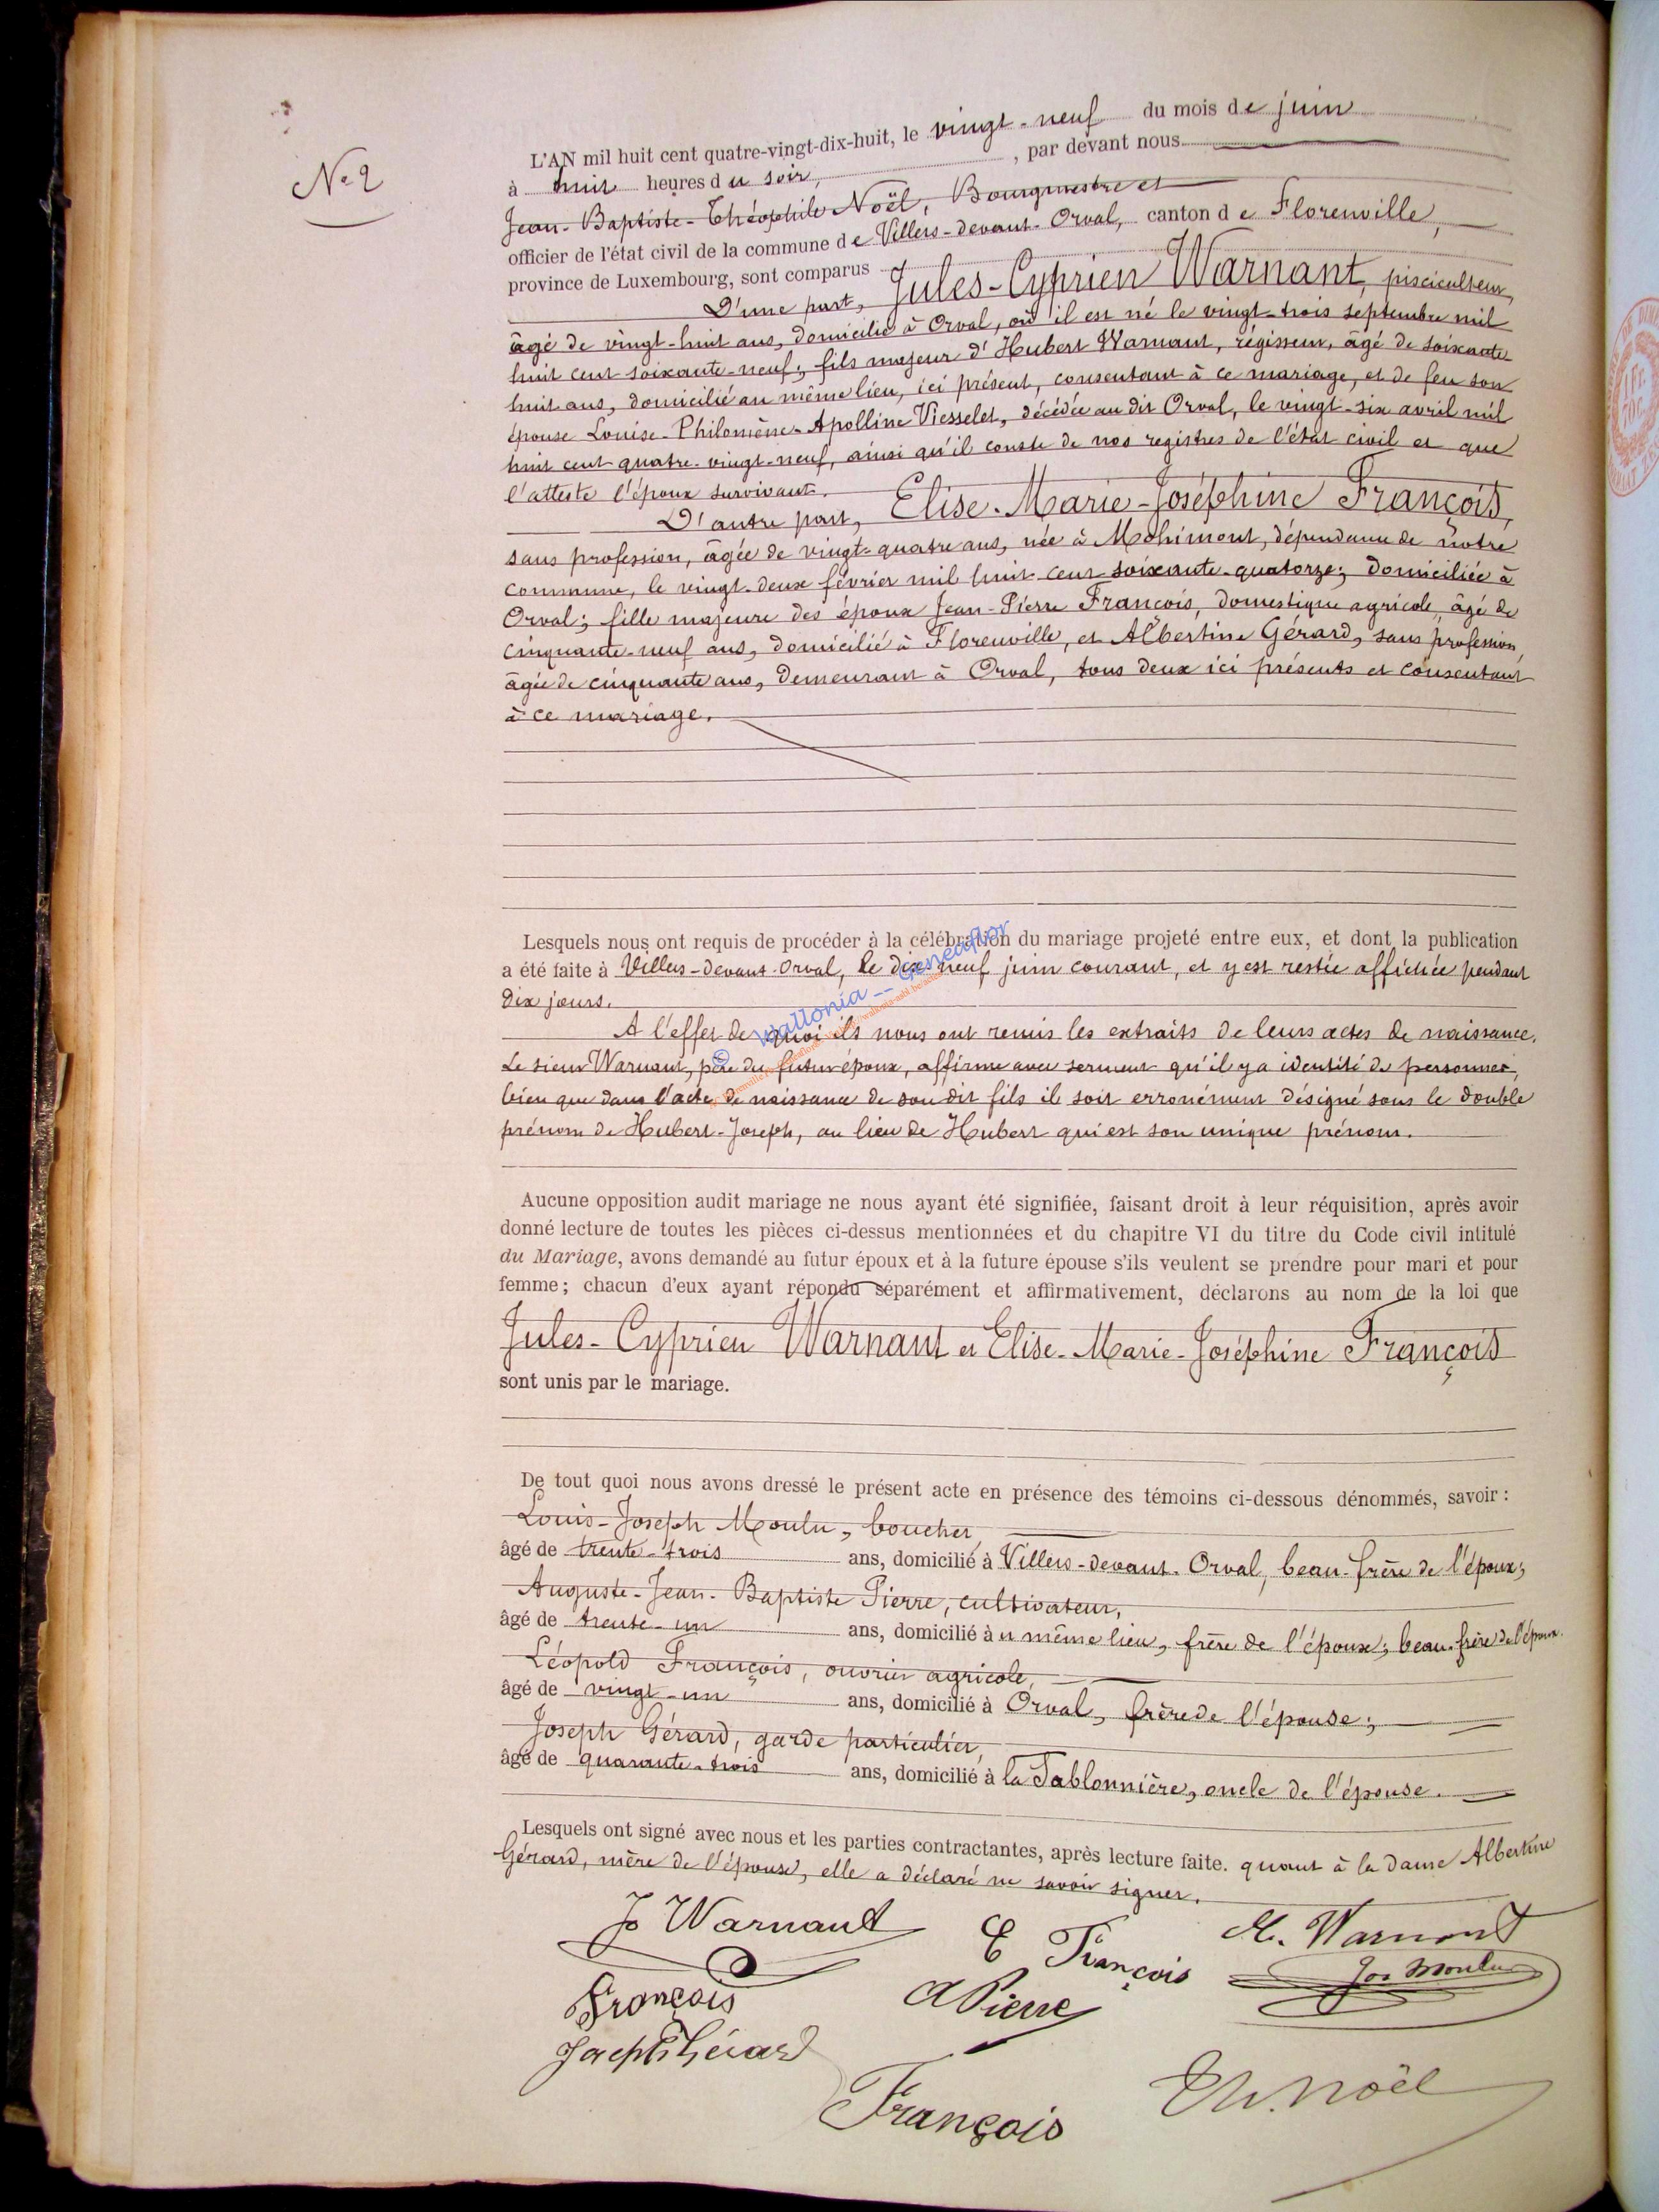 Nº 2
L'AN mil huit cent quatre-vingt-dix-huit, le vingt-neuf du mois de juin
à huit heures du soir, , par devant nous
Jean-Baptiste-Théophile Noël, Bourgmestre et
officier de l'état civil de la commune de Villers-devant-Orval, canton de Florenville,
province de Luxembourg, sont comparus
D'une part, Jules-Cyprien Warnant, pisciculteur,
âgé de vingt-huit ans, domicilié à Orval, où il est né le vingt-trois septembre mil
huit cent soixante-neuf; fils majeur d'Hubert Warnant, régisseur, âgé de soixante
huit ans, domicilié au même lieu, ici présent, consentant à ce mariage, et de feu son
épouse Louise-Philomène-Apolline Viesselet, décédée au dit Orval, le vingt-six avril mil
huit cent quatre-vingt-neuf, ainsi qu'il conste de nos registres de l'état civil et que
l'atteste l'époux survivant.
D'autre part, Elise-Marie-Joséphine François,
sans profession, âgée de vingt-quatre ans, née à Mohimont, dépendance de notre
commune, le vingt-deux février mil huit cent soixante-quatorze; domiciliée à
Orval; fille majeure des époux Jean-Pierre François, domestique agricole, âgé de
cinquante-neuf ans, domicilié à Florenville, et Albertine Gérard, sans profession,
âgée de cinquante ans, demeurant à Orval, tous deux ici présents et consentant
à ce mariage.
Lesquels nous ont requis de procéder à la célébration du mariage projeté entre eux, et dont la publication
a été faite à Villers-devant-Orval, le dix-neuf juin courant, et y est restée affichée pendant
dix jours.
© Wallonia -- Geneaflor
A l'effet de quoi ils nous ont remis les extraits de leurs actes de naissance.
Le sieur Warnant, père du futur époux, affirme avec serment qu'il y a identité de personnes,
bien que dans l'acte de naissance de son dit fils il soit erronément désigné sous le double
prénom de Hubert-Joseph, au lieu de Hubert qui est son unique prénom.
Aucune opposition audit mariage ne nous ayant été signifiée, faisant droit à leur réquisition, après avoir
donné lecture de toutes les pièces ci-dessus mentionnées et du chapitre VI du titre du Code civil intitulé
du Mariage, avons demandé au futur époux et à la future épouse s'ils veulent se prendre pour mari et pour
femme; chacun d'eux ayant répondu séparément et affirmativement, déclarons au nom de la loi que
Jules-Cyprien Warnant et Elise-Marie-Joséphine François
sont unis par le mariage.
De tout quoi nous avons dressé le présent acte en présence des témoins ci-dessous dénommés, savoir :
Louis-Joseph Moulu, boucher,
âgé de trente-trois ans, domicilié à Villers-devant-Orval, beau-frère de l'époux;
Auguste-Jean-Baptiste Pierre, cultivateur,
âgé de trente-un ans, domicilié au même lieu, frère de l'époux; beau-frère de l'époux.
Léopold François, ouvrier agricole,
âgé de vingt-un ans, domicilié à Orval, frère de l'épouse;
Joseph Gérard, garde particulier,
âgé de quarante-trois ans, domicilié à la Sablonnière, oncle de l'épouse.
Lesquels ont signé avec nous et les parties contractantes, après lecture faite. quant à la dame Albertine
Gérard, mère de l'épouse, elle a déclaré ne savoir signer.
J Warnant E François H. Warnant
Jos Moulu
François A Pierre
Joseph Gérard
François Th. Noël